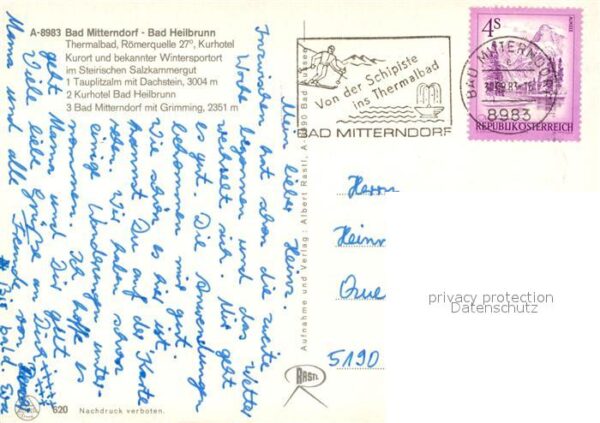 A-8983 Bad Mitterndorf - Bad Heilbrunn
Thermalbad, Römerquelle 27°, Kurhotel
Kurort und bekannter Wintersportort
im Steirischen Salzkammergut
1 Tauplitzalm mit Dachstein, 3004 m
2 Kurhotel Bad Heilbrunn
3 Bad Mitterndorf mit Grimming, 2351 m
Von der Schipiste
ins Thermalbad
BAD MITTERNDORF
4S
REPUBLIK ÖSTERREICH
BAD MITTERNDORF
8983
Mein lieber Heinz.
Inzwischen hat schon die zweite
Woche begonnen und das Wetter
wechselt sich. Mir geht
es gut. Die Anwendungen
bekommen mir gut.
Wie schön es hier ist
kannst Du auf der Karte
sehen. Wir haben schon
einige Wanderungen unter-
nommen. Ich hoffe es
geht Mama und Dir gut.
Viele liebe Grüße an Dich
Mama und alle Freunde von
Bis bald.
Herrn
Heinz
5190
Aufnahme und Verlag: Albert Rastl, A-8990 Bad Aussee
RASTL
620
Nachdruck verboten.
privacy protection
Datenschutz